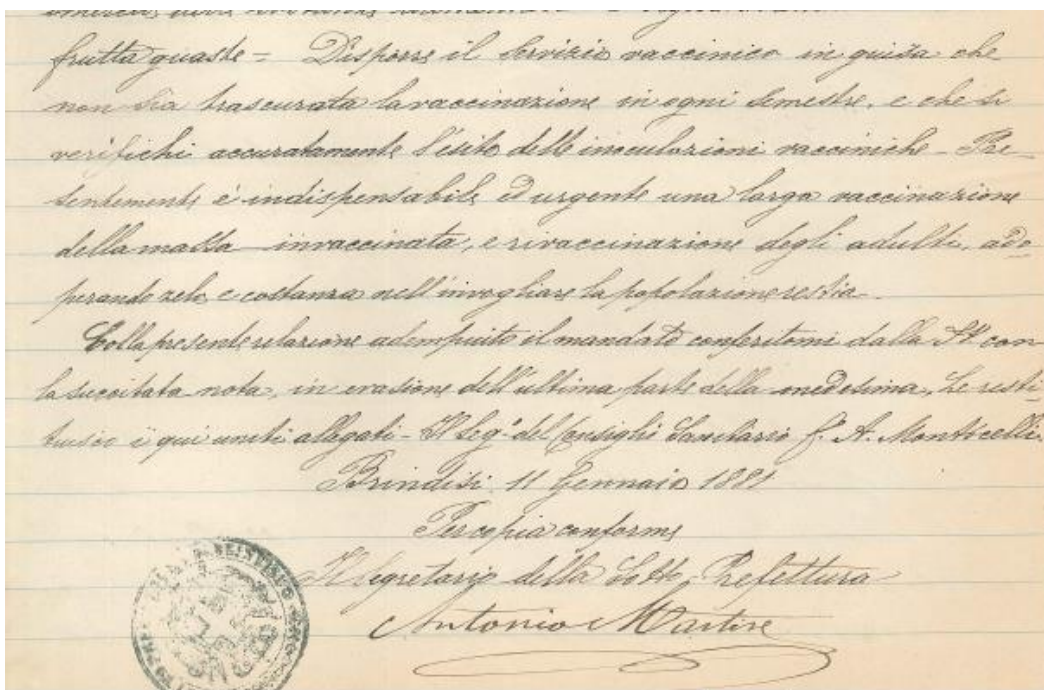 frutta guaste = Disporre il servizio vaccinico in guisa che
non sia trascurata la vaccinazione in ogni semestre, e che si
verifichi accuratamente l'esito delle inoculazioni vacciniche - Pre-
sentemente è indispensabile ed urgente una larga vaccinazione
della massa invaccinata, e rivaccinazione degli adulti, ado
perando zelo e costanza nell'invogliare la popolazione restia.
Colla presente relazione adempiuto il mandato conferitomi dalla con
la succitata nota, in evasione dell'ultima parte della medesima, Le resti-
tuisco i qui uniti allegati - Il Seg.o del Consiglio Sanitario f. A. Monticelli.
Brindisi 11 Gennaio 1881
Per copia conforme
Il Segretario della Sotto Prefettura
Antonio Martire